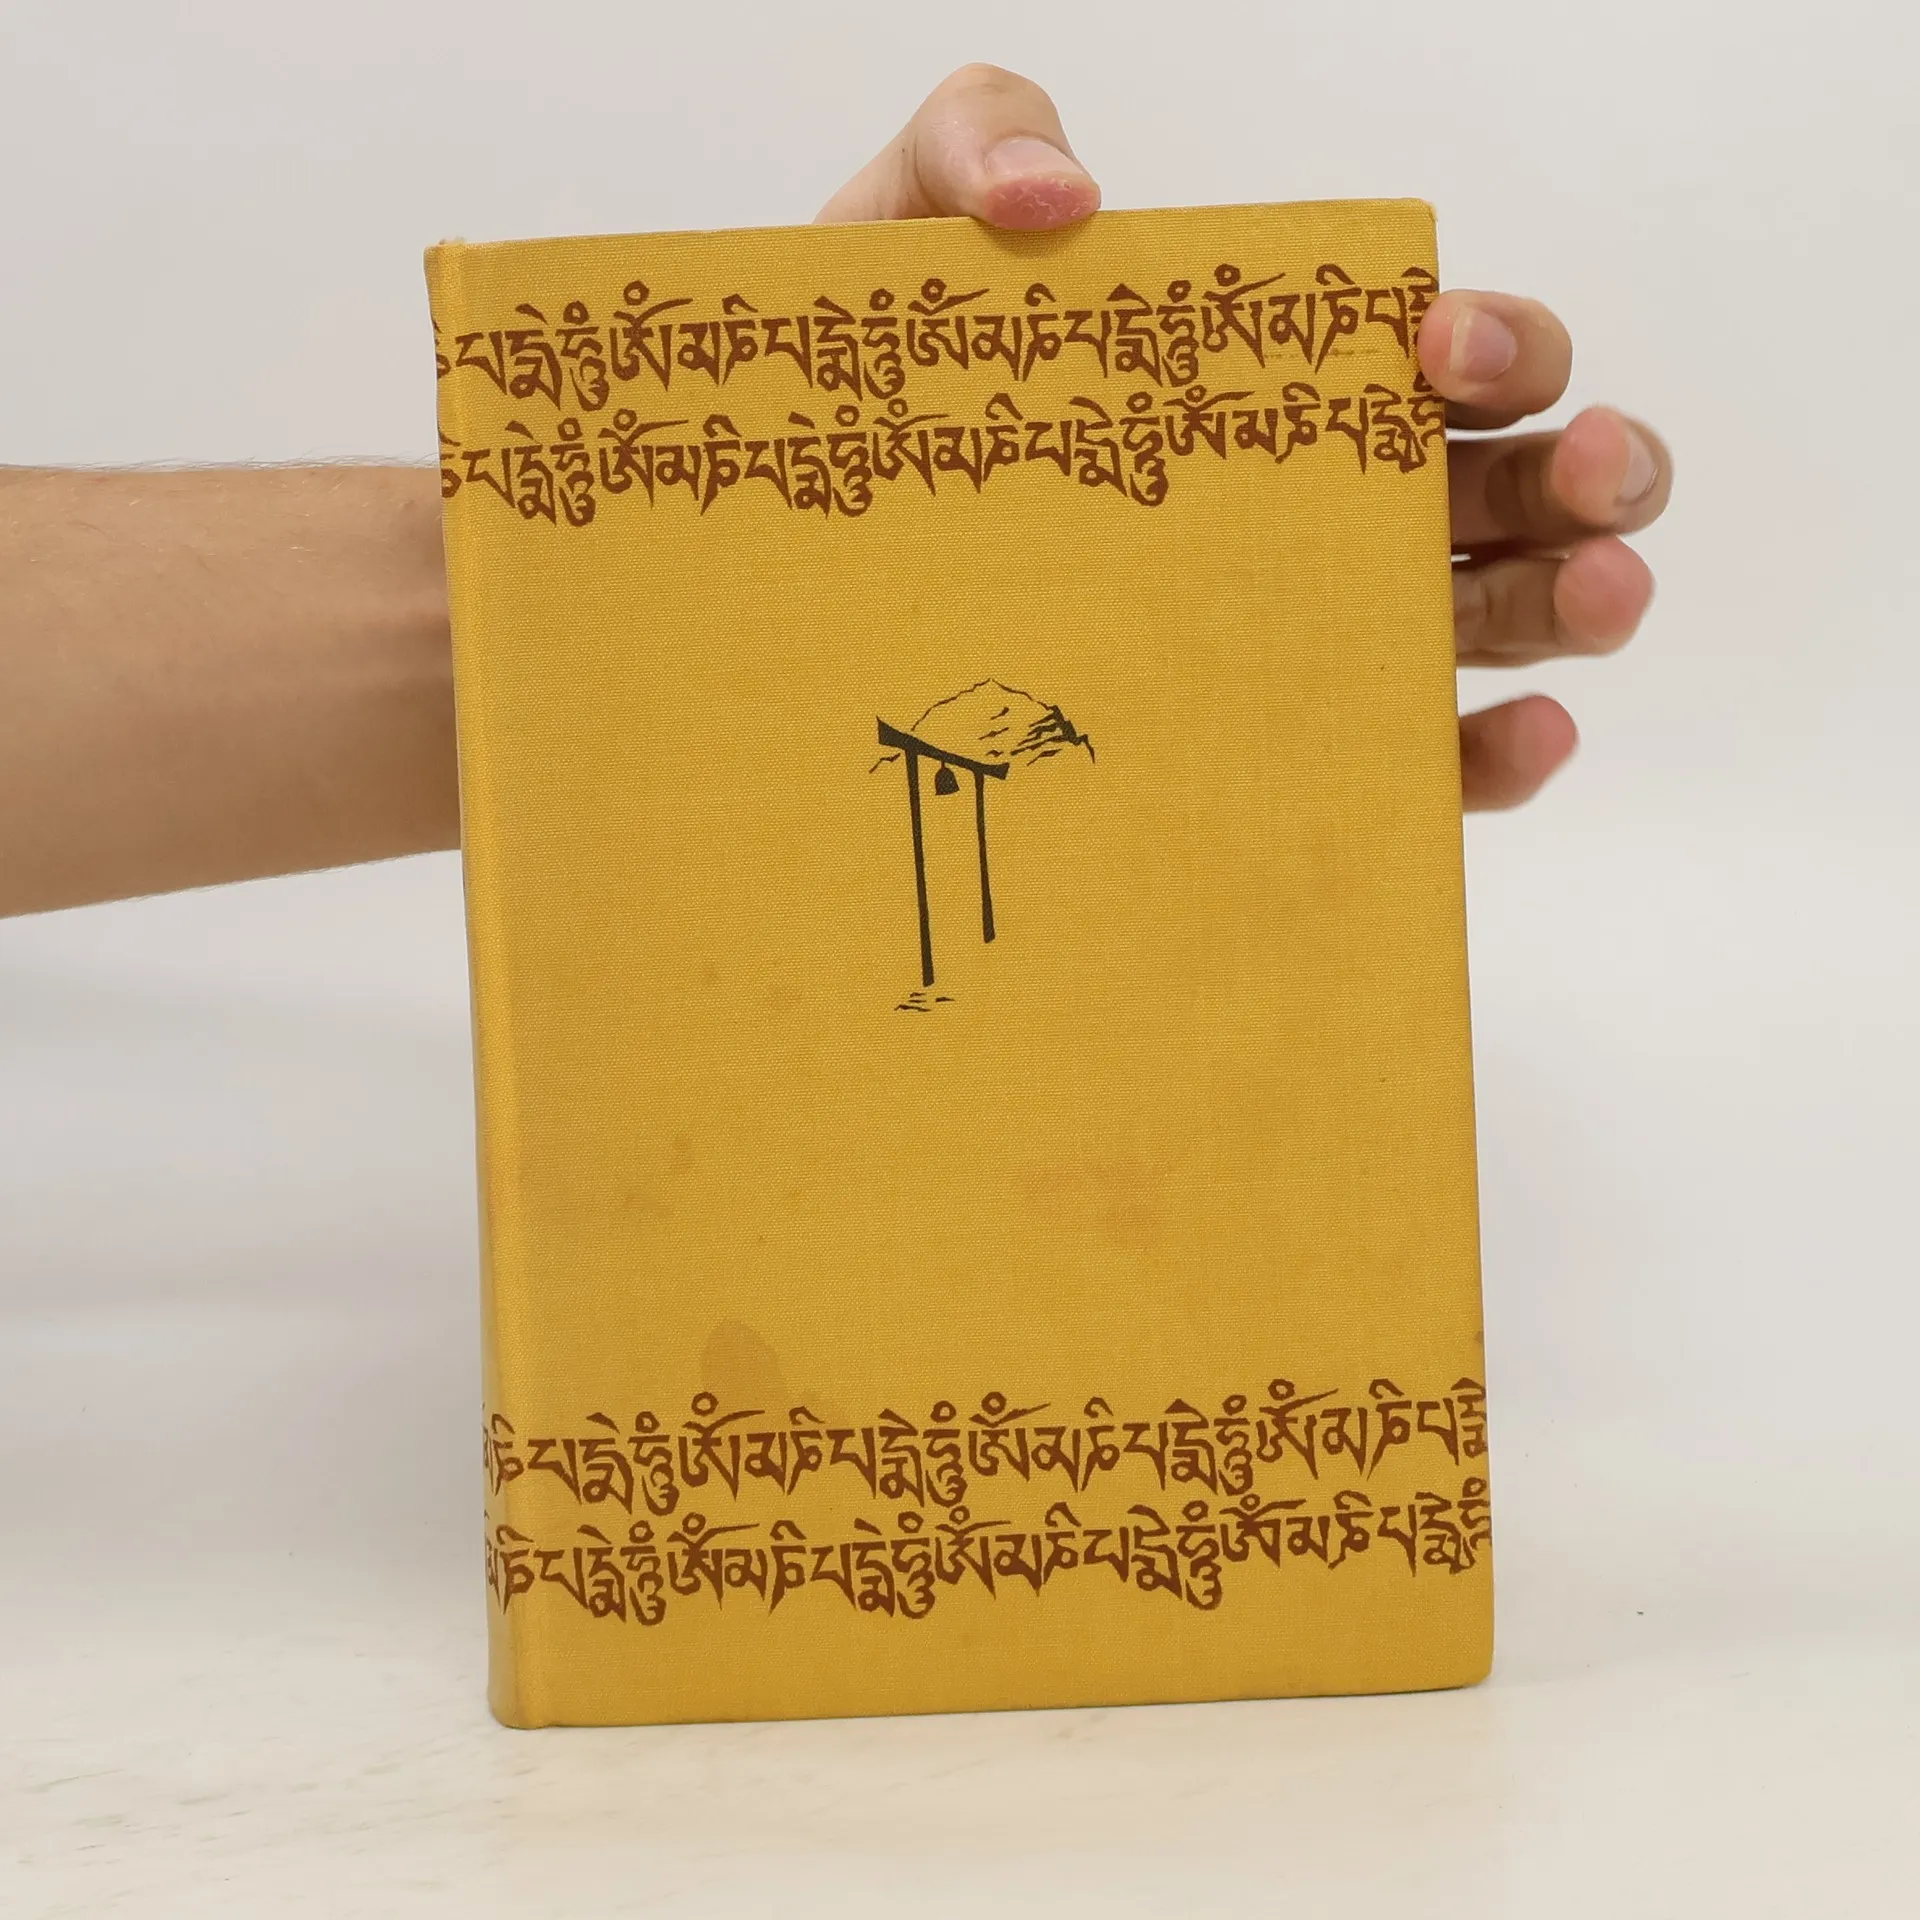 ཎིཔདྨེཧཱུྃཨོཾམཎིཔདྨེཧཱུྃཨོཾམཎིཔདྨེཧཱུྃཨོཾམཎིཔདྨེ
ཎིཔདྨེཧཱུྃཨོཾམཎིཔདྨེཧཱུྃཨོཾམཎིཔདྨེཧཱུྃཨོཾམཎིཔདྨེཧཱུྃ
མཎིཔདྨེཧཱུྃཨོཾམཎིཔདྨེཧཱུྃཨོཾམཎིཔདྨེཧཱུྃཨོཾམཎིཔདྨེ
མཎིཔདྨེཧཱུྃཨོཾམཎིཔདྨེཧཱུྃཨོཾམཎིཔདྨེཧཱུྃཨོཾམཎིཔདྨེཧཱུྃ